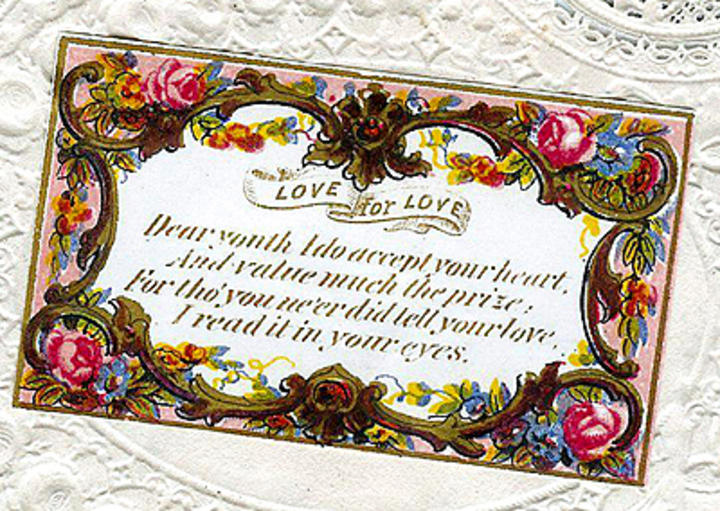 LOVE for LOVE
Dear youth I do accept your heart,
And value much the prize;
For tho' you ne'er did tell your love,
I read it in your eyes.